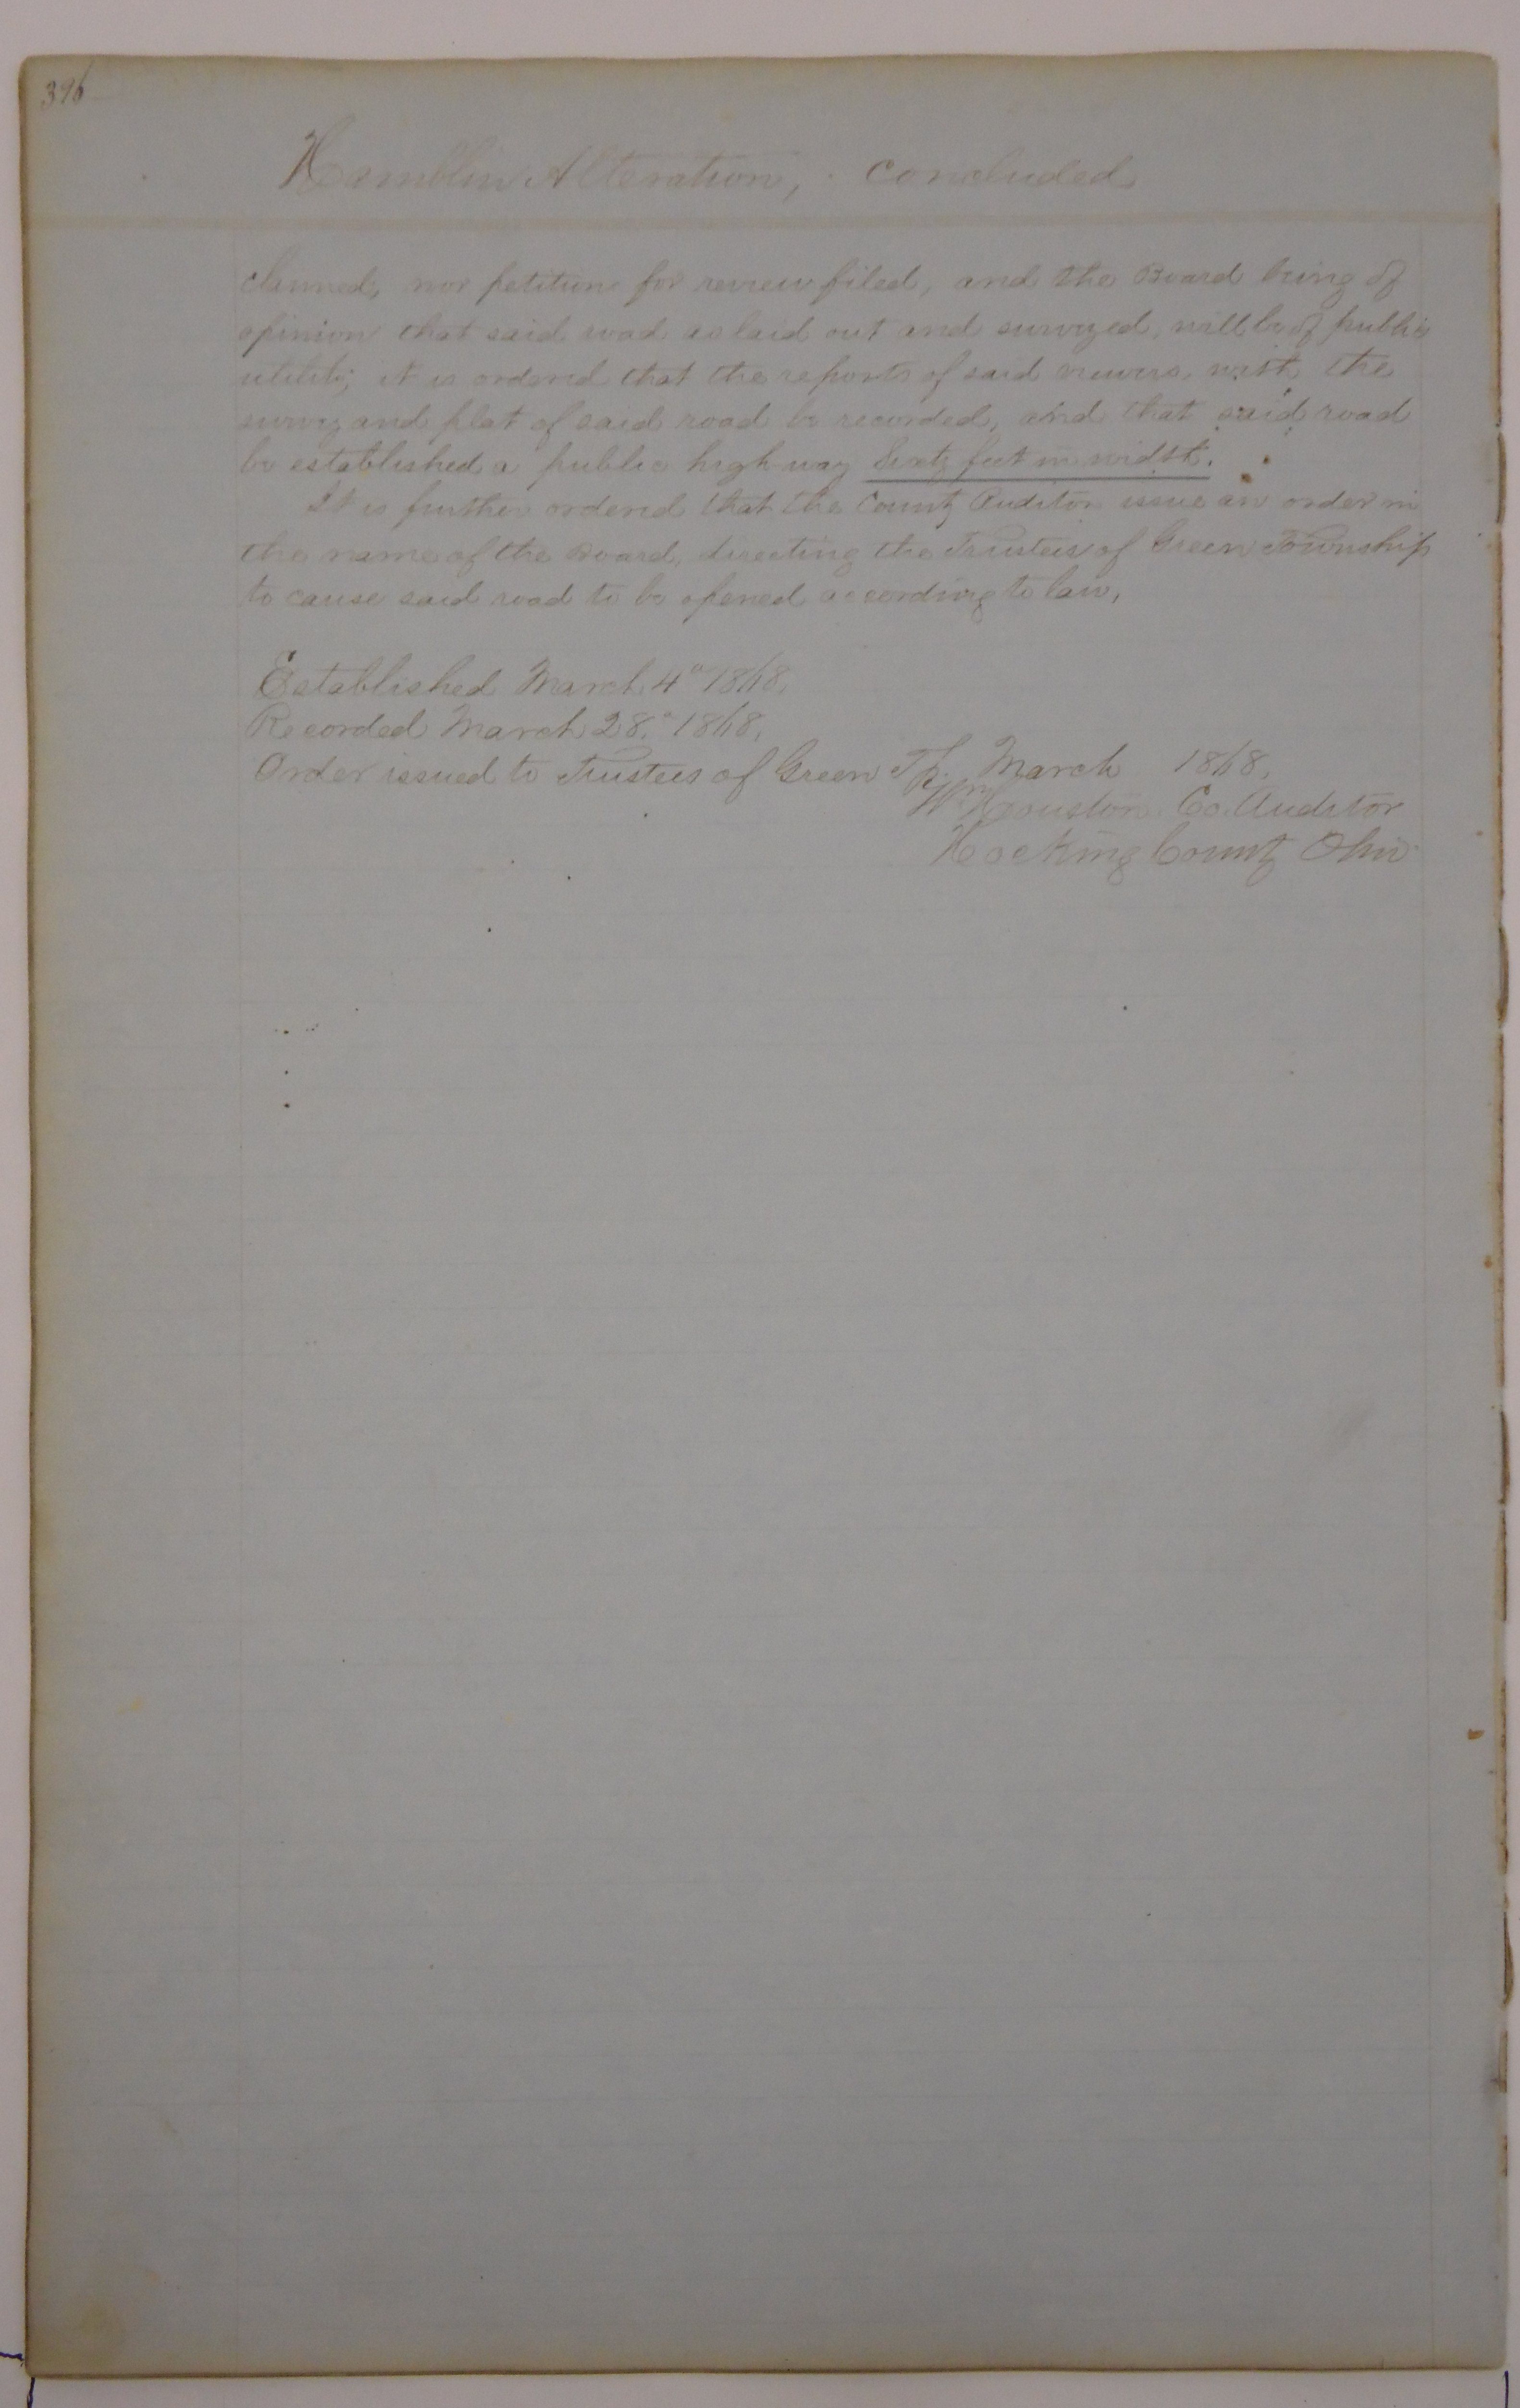 396
Hamblin Alteration, concluded
claimed, nor petition for review filed, and the Board being of
opinion that said road as laid out and surveyed, will be of public
utility; it is ordered that the reports of said viewers with the
survey and plat of said road be recorded, and that said road
be established a public highway Sixty feet in width.
It is further ordered that the County Auditor issue an order in
the name of the Board, directing the Trustees of Green Township
to cause said road to be opened according to law,
Established March 4" 1868.
Recorded March 28." 1868.
Order issued to Trustees of Green Tp. March 1868.
Wm Houston Co. Auditor
Hocking County Ohio